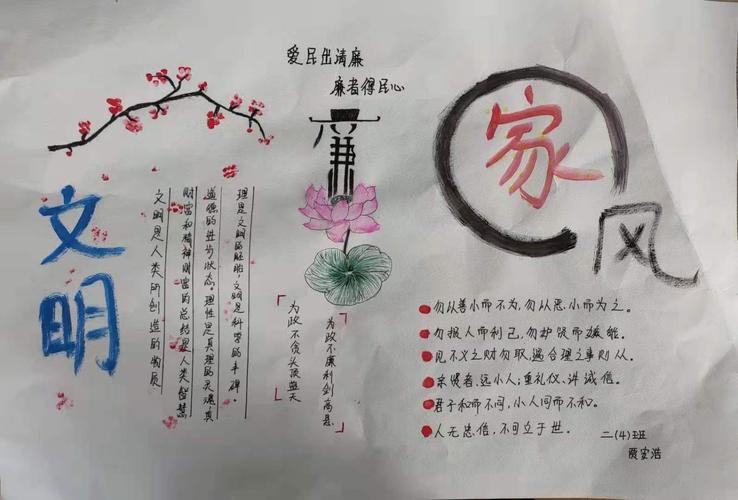 爱民出清廉
廉者得民心
廉
文明
文明是人类所创造的物质
财富和精神财富的总结是人类智慧
道德的进步状态。理性是真理的灵魂真
理是文明的胚胎，文明是科学的丰碑。
为政不贪头顶蓝天
为政不廉利剑高悬
家风
勿以善小而不为，勿以恶小而为之。
勿损人而利己，勿妒贤而嫉能。
见不义之财勿取，遇合理之事则从。
亲贤者，远小人；重礼仪、讲诚信。
君子和而不同，小人同而不和。
人无忠信，不可立于世。
二(4)班